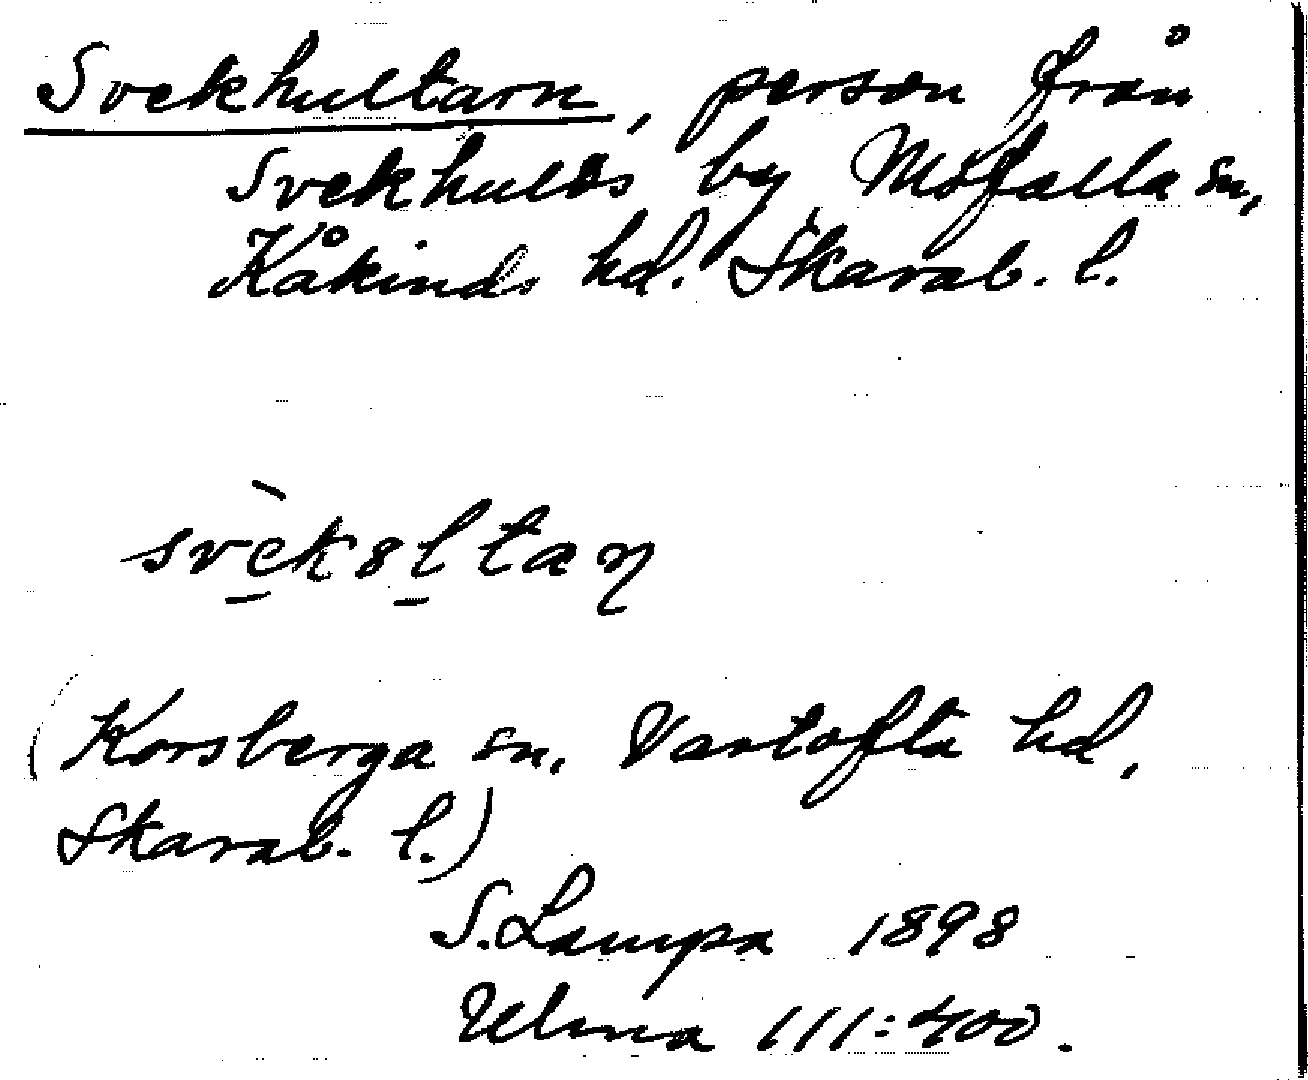 Svekhultarn, person från
Svekhults by Mofalla sn,
Kåkinds hd. Skarab. l.
(Korsberga sn. Vartofta hd,
Skarab. l.)
S. Lampa 1898
Ulma 111:400.